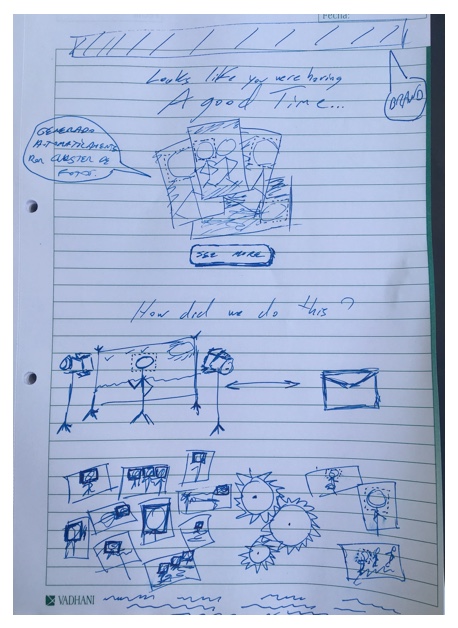 Fecha:
Looks like you were having
A good Time...
BRAND
GENERADO
AUTOMATICAMENTE
POR CLUSTER DE
FOTOS.
SEE MORE
How did we do this?
VADHANI